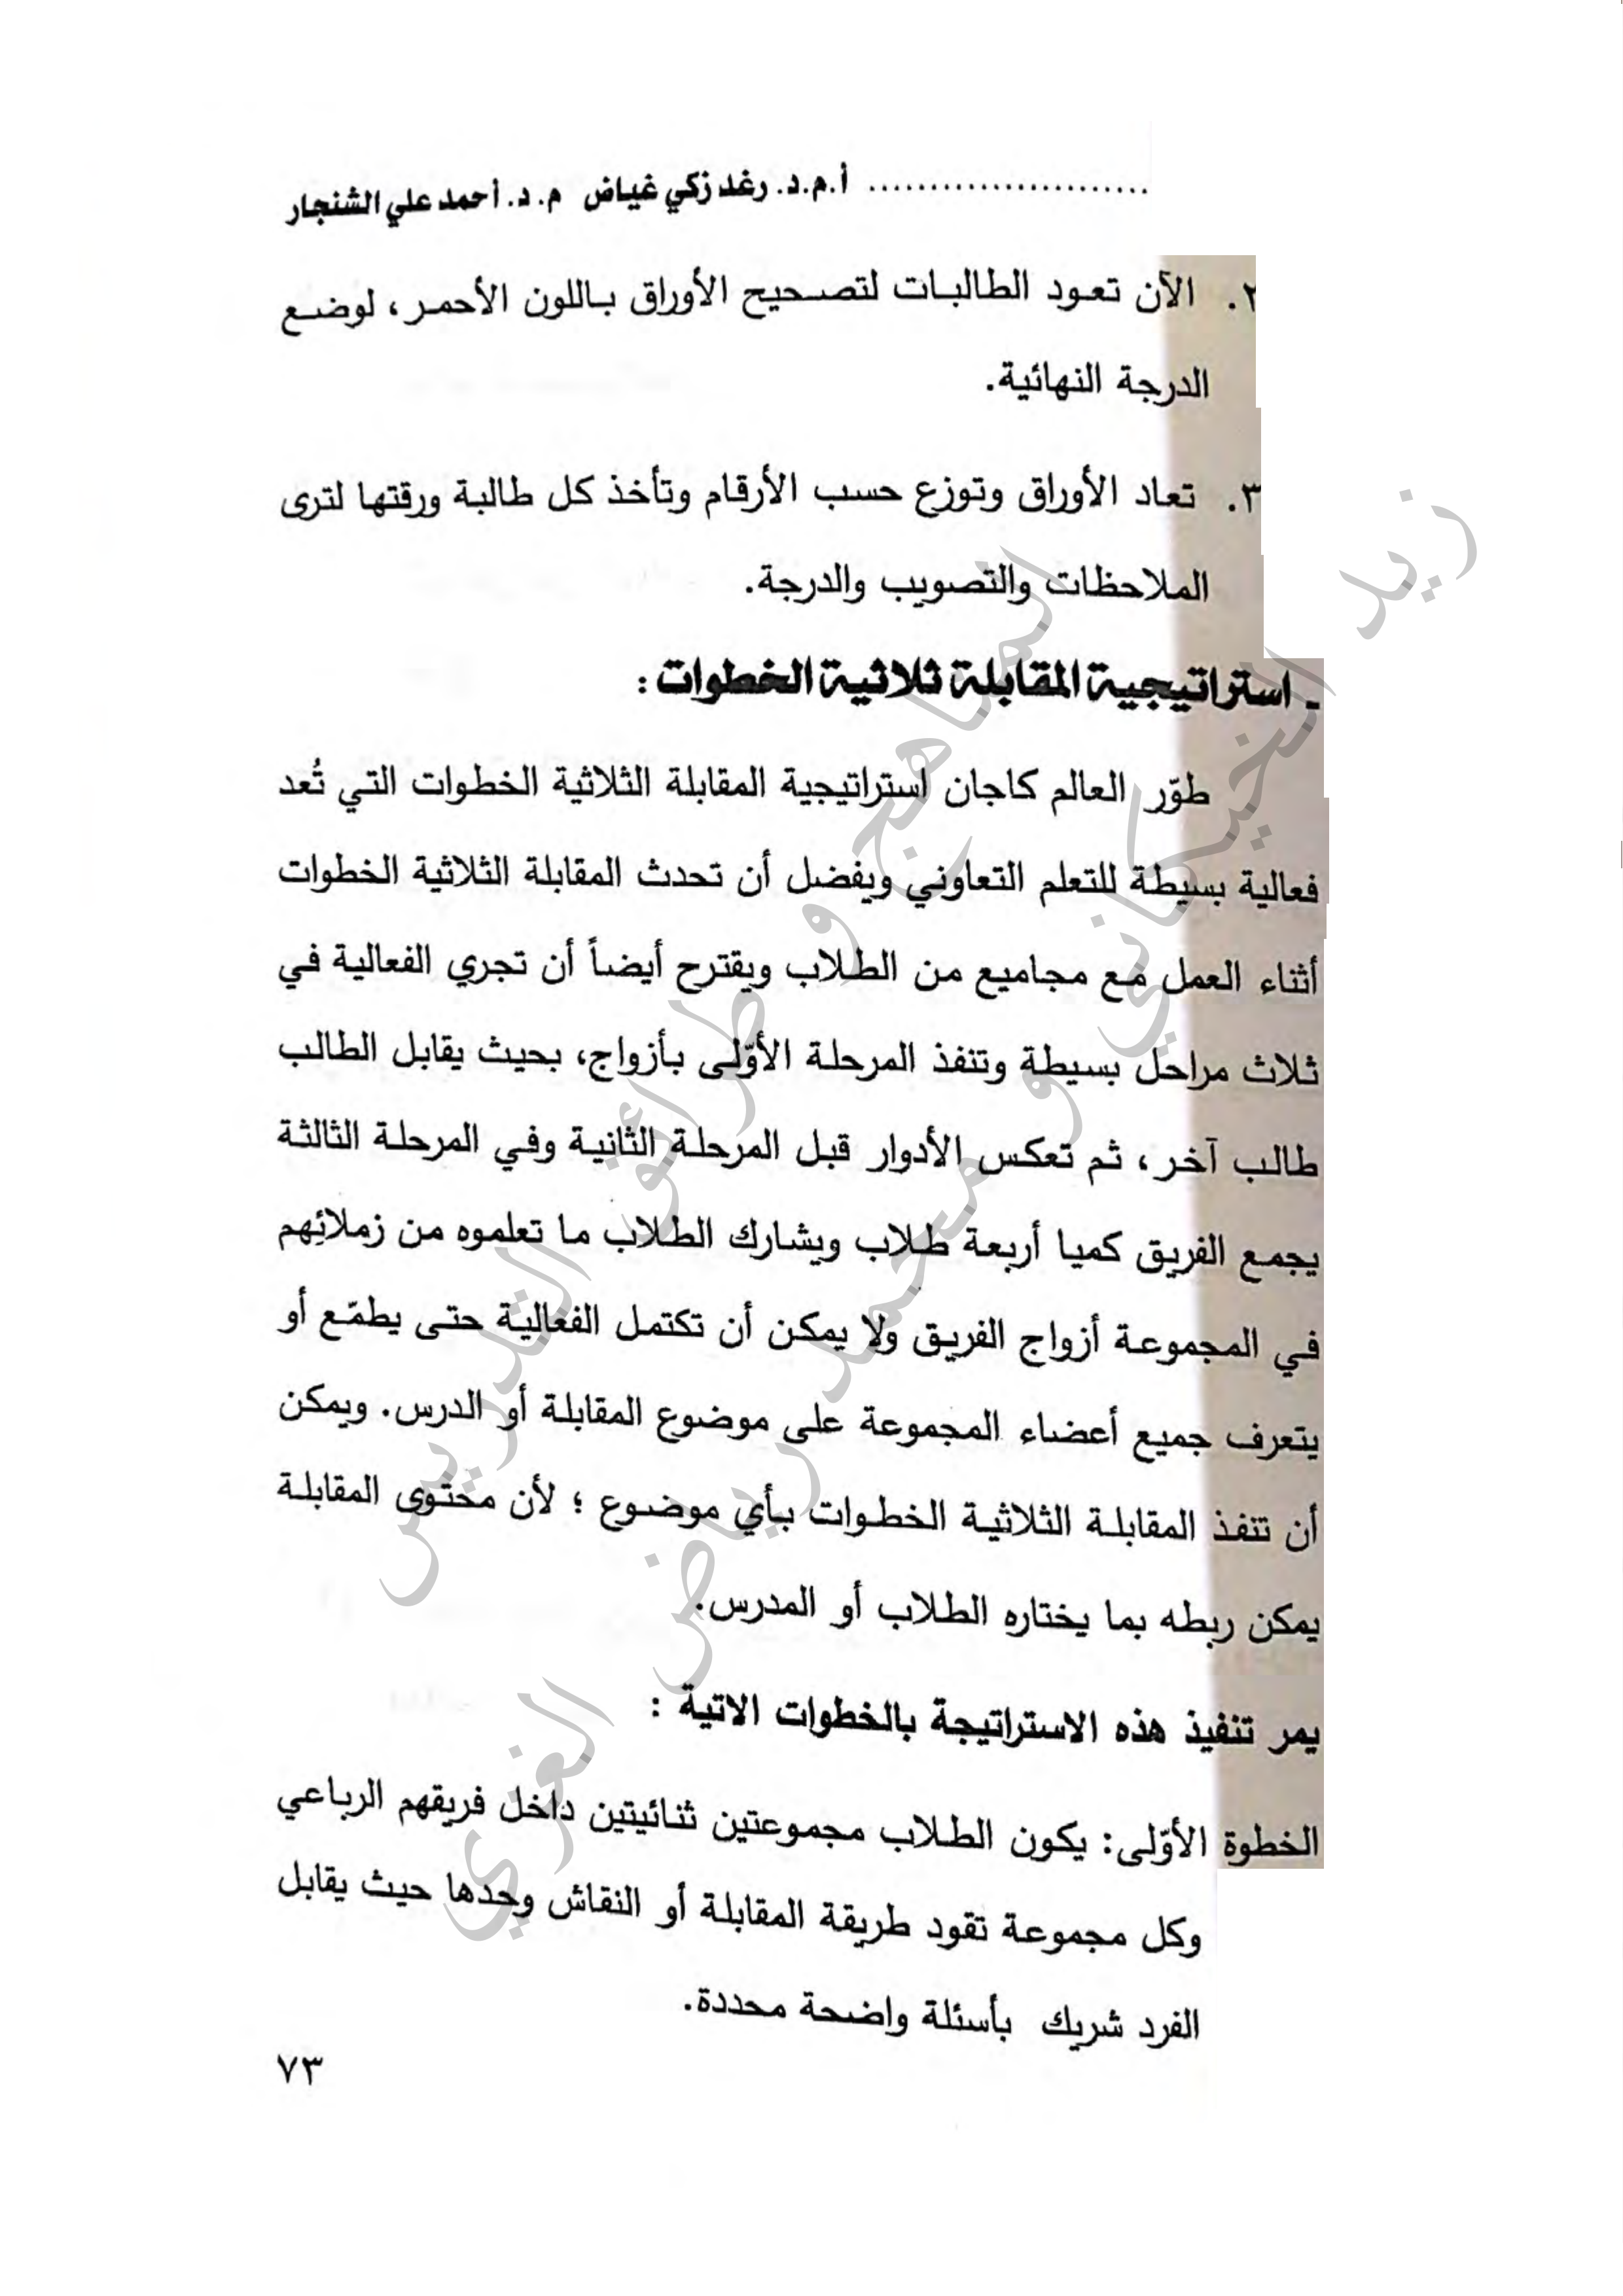 ........................ أ.م.د. رغد زكي غياض م. د. أحمد علي الشنجار
٢. الآن تعود الطالبات لتصحيح الأوراق باللون الأحمر، لوضع
الدرجة النهائية.
٣. تعاد الأوراق وتوزع حسب الأرقام وتأخذ كل طالبة ورقتها لترى
الملاحظات والتصويب والدرجة.
ـ استراتيجية المقابلة ثلاثية الخطوات :
طوّر العالم كاجان استراتيجية المقابلة الثلاثية الخطوات التي تُعد
فعالية بسيطة للتعلم التعاوني ويفضل أن تحدث المقابلة الثلاثية الخطوات
أثناء العمل مع مجاميع من الطلاب ويقترح أيضاً أن تجري الفعالية في
ثلاث مراحل بسيطة وتنفذ المرحلة الأوّلى بأزواج، بحيث يقابل الطالب
طالب آخر، ثم تعكس الأدوار قبل المرحلة الثانية وفي المرحلة الثالثة
يجمع الفريق كميا أربعة طلاب ويشارك الطلاب ما تعلموه من زملائِهم
في المجموعة أزواج الفريق ولا يمكن أن تكتمل الفعالية حتى يطمّع أو
يتعرف جميع أعضاء المجموعة على موضوع المقابلة أو الدرس. ويمكن
أن تنفذ المقابلة الثلاثية الخطوات بأي موضوع ؛ لأن محتوى المقابلة
يمكن ربطه بما يختاره الطلاب أو المدرس.
يمر تنفيذ هذه الاستراتيجة بالخطوات الاتية :
الخطوة الأوّلى: يكون الطلاب مجموعتين ثنائيتين داخل فريقهم الرباعي
وكل مجموعة تقود طريقة المقابلة أو النقاش وحدها حيث يقابل
الفرد شريك بأسئلة واضحة محددة.
٧٣
المناهج و طرائق التدريس
زيد الخيكاني و محمد رياض الغزي